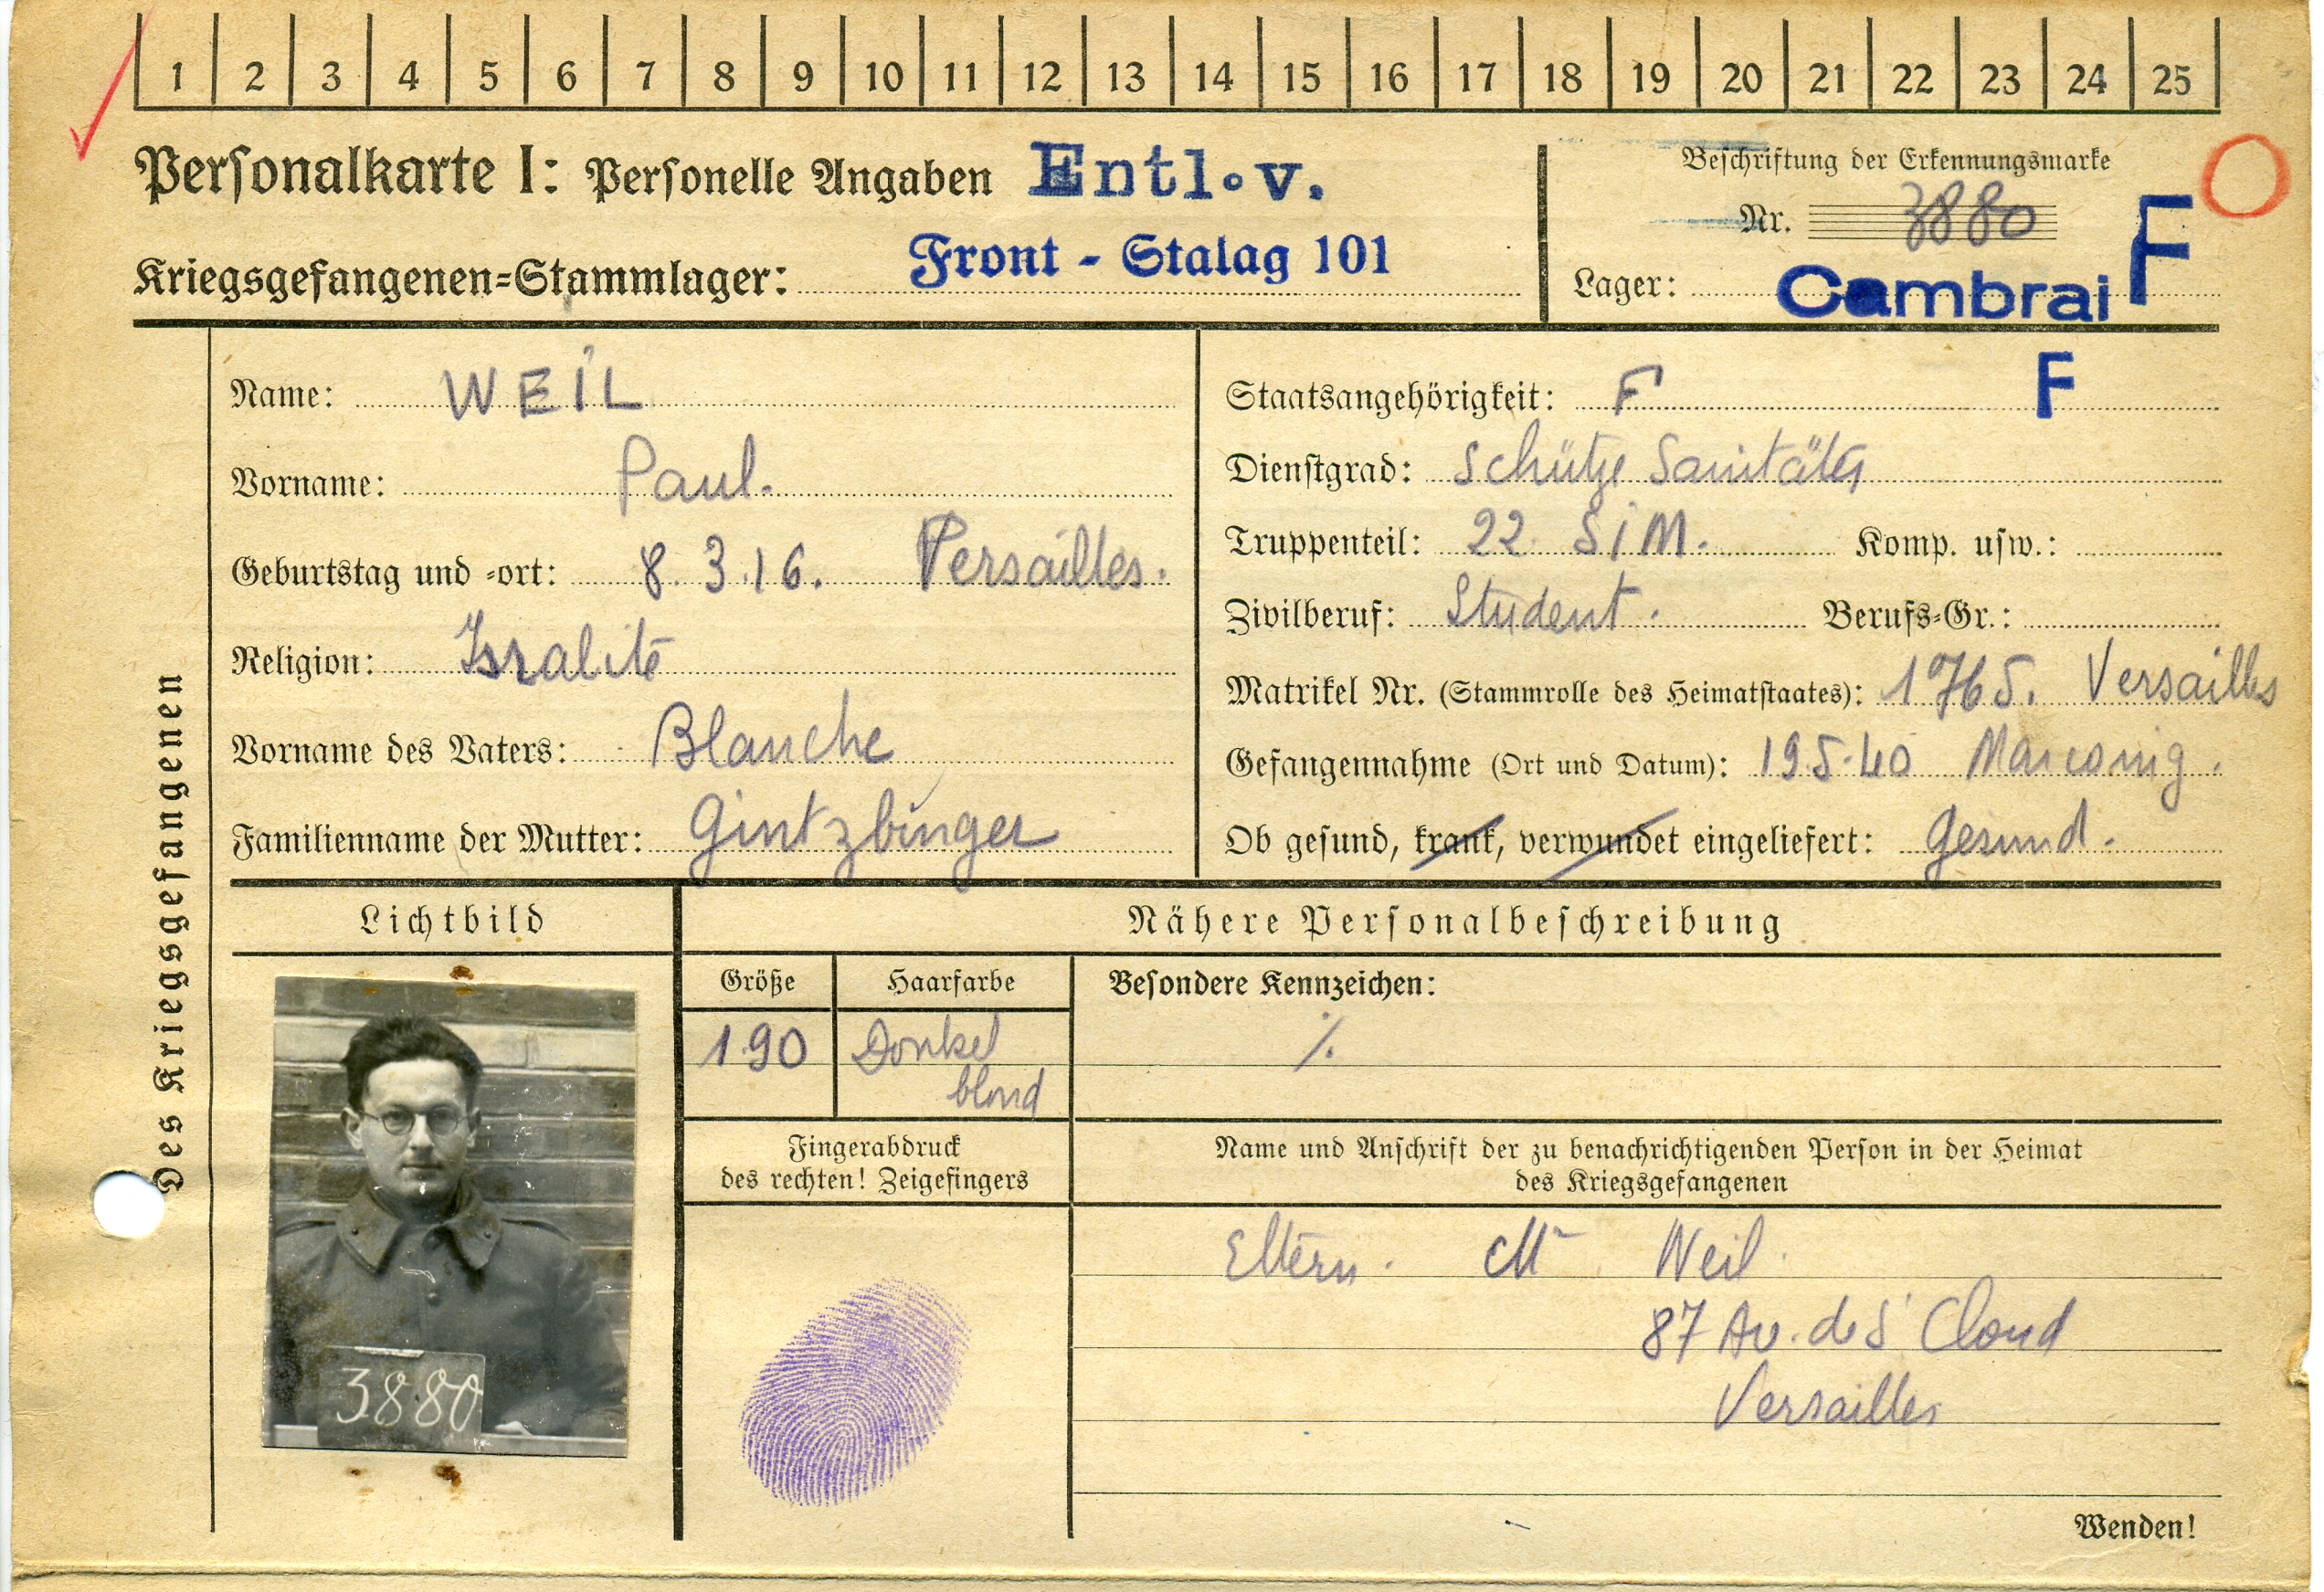 1 2 3 4 5 6 7 8 9 10 11 12 13 14 15 16 17 18 19 20 21 22 23 24 25
Personalkarte I: Personelle Angaben Entl. v.
Kriegsgefangenen-Stammlager: Front - Stalag 101
Beschriftung der Erkennungsmarke
Nr. 3880
Lager: Cambrai F
Des Kriegsgefangenen
Name: WEIL
Vorname: Paul.
Geburtstag und -ort: 8.3.16. Versailles.
Religion: Isralite
Vorname des Vaters: Blanche
Familienname der Mutter: Gintzbinger
Staatsangehörigkeit: F F
Dienstgrad: Schütze Sanitäter
Truppenteil: 22 SIM. Komp. usw.:
Zivilberuf: Student. Berufs-Gr.:
Matrikel Nr. (Stammrolle des Heimatstaates): 1765. Versailles
Gefangennahme (Ort und Datum): 19.5.40
Ob gesund, krank, verwundet eingeliefert: Gesund.
Lichtbild
3880
Nähere Personalbeschreibung
Größe
190
Haarfarbe
Donkel
blond
Besondere Kennzeichen:
%
Fingerabdruck
des rechten! Zeigefingers
Name und Anschrift der zu benachrichtigenden Person in der Heimat
des Kriegsgefangenen
Eltern. Mr Weil
87 Av. de St Cloud
Versailles
Wenden!